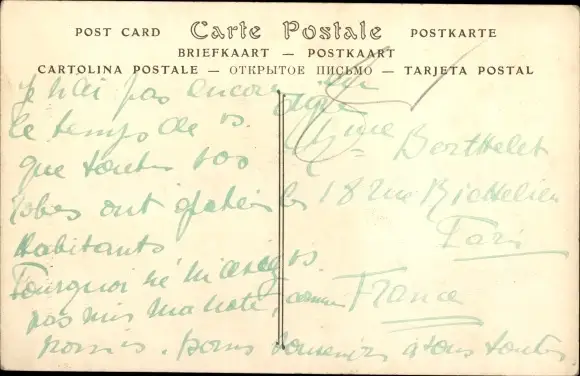 POST CARD Carte Postale POSTKARTE
BRIEFKAART — POSTKAART
CARTOLINA POSTALE — ОТКРЫТОЕ ПИСЬМО — TARJETA POSTAL
Je n'ai pas encore
le temps de vs.
que toutes vos
robes ont
habitants
Pourquoi ne m'
pas mis ma note, comme
promis. bons souvenirs à tous toutes
Mme Berthelet
18 rue Richelieu
Paris
France